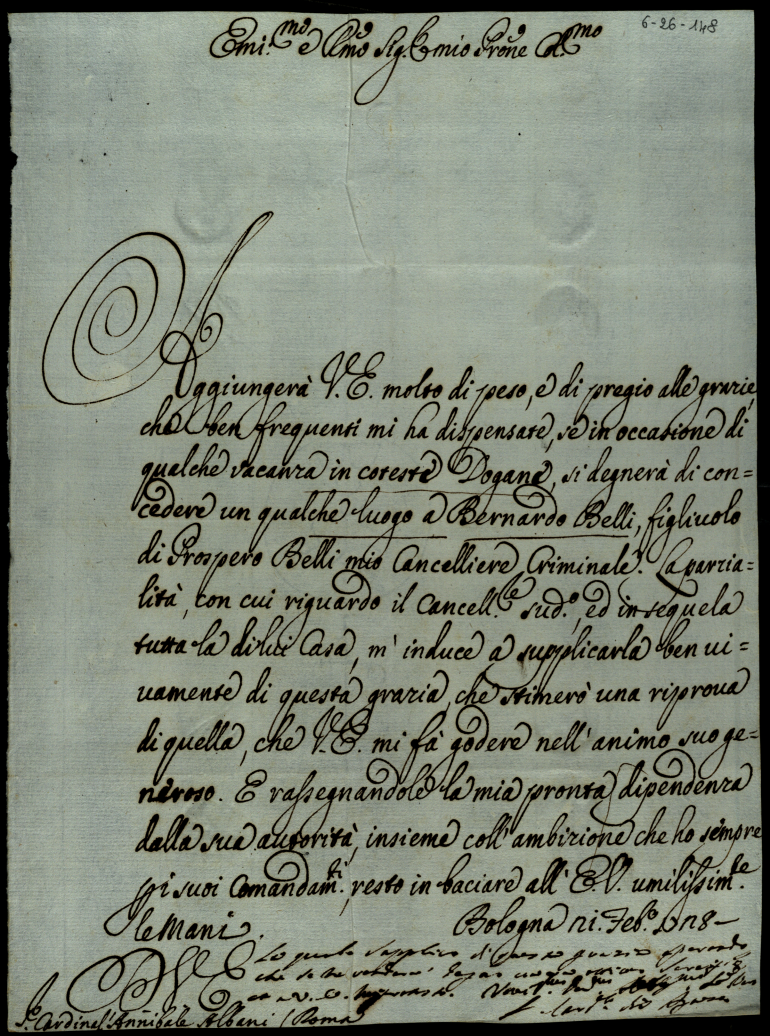 6-26-148
Emi.mo e Rmo Sig.r mio Prone Col.mo
Aggiungerà V.E. molto di peso, e di pregio alle grazie,
che ben frequenti mi ha dispensate, se in occasione di
qualche vacanza in coteste Dogane, si degnerà di con=
cedere un qualche luogo a Bernardo Belli, figliuolo
di Prospero Belli mio Cancelliere Criminale. La parzia=
lità, con cui riguardo il Cancell.re sud.o, ed in sequela
tutta la di lui Casa, m' induce a supplicarla ben ui=
uamente di questa grazia, che stimerò una riproua
di quella, che V.E. mi fà godere nell' animo suo ge=
neroso. E rassegnandole la mia pronta dipendenza
dalla sua autorità, insieme coll' ambizione che ho sempre
pi suoi Comandam.ti, resto in baciare all' E.V. umilissim.te
le Mani.
Bologna 21. Feb.o 1728
VE
Io pure supplico di questa grazia
che se
S.r Cardinal' Annibale Albani / Roma